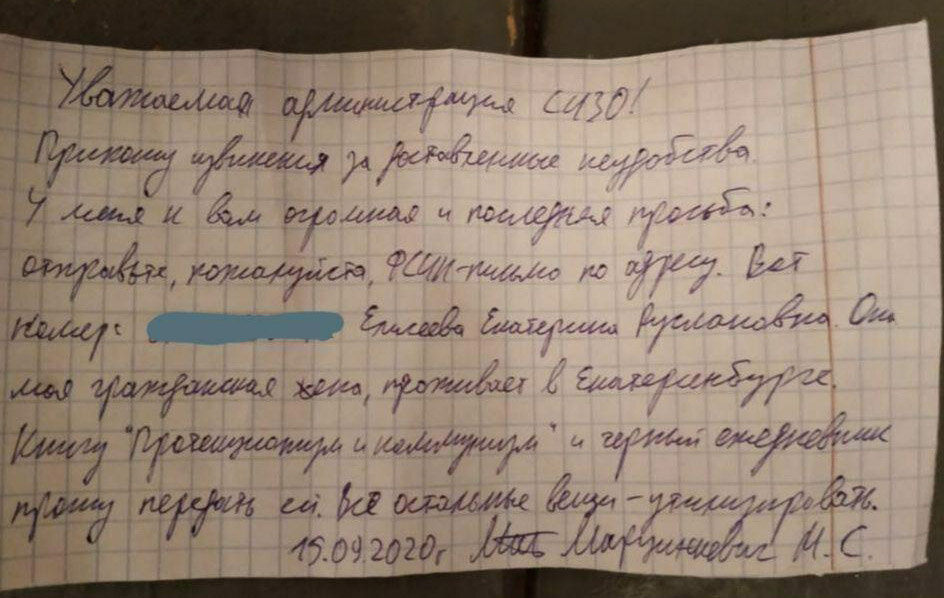 Уважаемая администрация СИЗО!
Приношу извинения за доставленные неудобства.
У меня к вам огромная и последняя просьба:
отправьте, пожалуйста, ФСИН-письмо по адресу. Вот
номер: Елисеева Екатерина Руслановна. Она
моя гражданская жена, проживает в Екатеринбурге.
Книгу "Протекционизм и коммунизм" и черный ежедневник
прошу передать ей. Всё остальные вещи – утилизировать.
15.09.2020г Марцинкевич М. С.